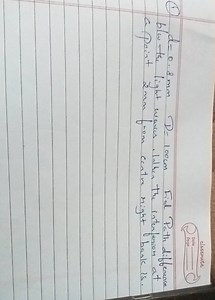 ① d=0.2mm D=100cm Find Path difference
b/w the light waves. When the interference at
a point 2mm from centre right bank the